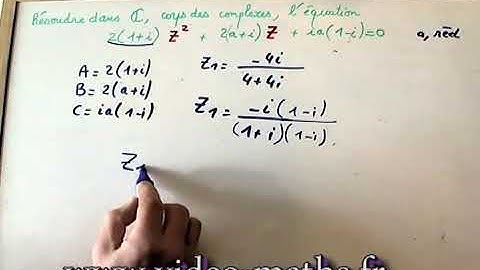 Résoudre dans ℂ, corps des complexes, l'équation
2(1+i) Z² + 2(a+i) Z + ia(1-i)=0 a, réel
A = 2(1+i)
B = 2(a+i)
C = ia(1-i)
Z₁ = -4i / 4+4i
Z₁ = -i(1-i) / (1+i)(1-i)
Z₁
www.video-maths.fr